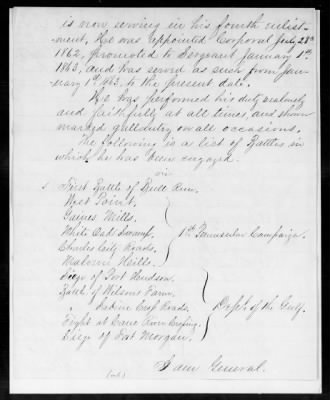 is now serving in his fourth enlist-
ment, He was appointed Corporal July 28th
1862, promoted to Sergeant January 1st
1863, and has served as such from Jan-
uary 1st 1863, to the present date.
He has performed his duty zealously
and faithfully at all times, and shown
marked gallantry on all occasions.
The following is a list of Battles in
which he has been engaged.
First Battle of Bull Run.
West Point.
Gaines Mills.
White Oak Swamp.
Charles City Roads.
Malvern Hills.
1st Peninsular Campaign.
Siege of Port Hudson.
Battle of Wilsons Farm.
" Sabine Cross Roads.
Fight at Cane River Crossing.
Siege of Fort Morgan.
Dept. of the Gulf.
I am General.